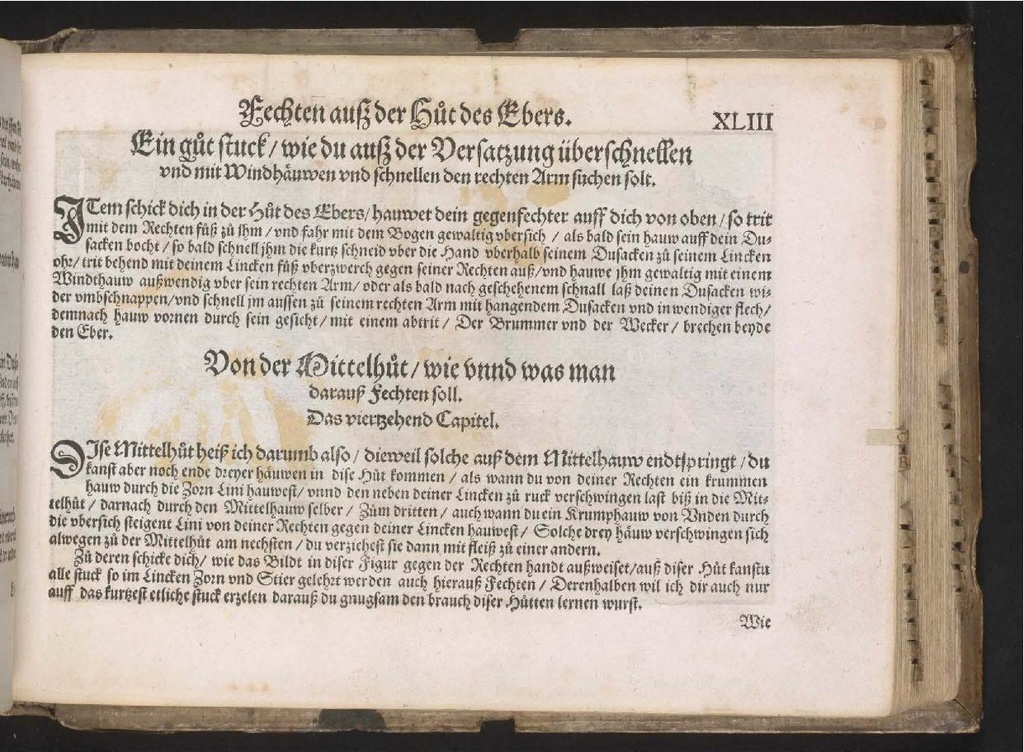 Fechten auß der Hůt des Ebers. XLIII
Ein gůt stuck / wie du auß der Versatzung überschnellen
vnd mit Windhäuwen vnd schnellen den rechten Arm suchen solt.
ITem schick dich in der Hůt des Ebers / hauwet dein gegenfechter auff dich von oben / so trit
mit dem Rechten fůß zů ihm / vnd fahr mit dem Bogen gewaltig vbersich / als bald sein hauw auff dein Du-
sacken bocht / so bald schnell jhm die kurtz schneid vber die Hand vberhalb seinem Dusacken zů seinem Lincken
ohr / trit behend mit deinem Lincken fůß vberzwerch gegen seiner Rechten auß / vnd hauwe jhm gewaltig mit einem
Windthauw außwendig vber sein rechten Arm / oder als bald nach geschehenem schnall laß deinen Dusacken wi-
der vmbschnappen / vnd schnell jm aussen zů seinem rechten Arm mit hangendem Dusacken vnd inwendiger flech /
demnach hauw vornen durch sein gesicht / mit einem abtrit / Der Brummer vnd der Wecker / brechen beyde
den Eber.
Von der Mittelhůt / wie vnnd was man
darauß Fechten soll.
Das viertzehend Capitel.
DIse Mittelhůt heiß ich darumb also / dieweil solche auß dem Mittelhauw endtspringt / du
kanst aber noch ende dreyer häuwen in dise Hůt kommen / als wann du von deiner Rechten ein krummen
hauw durch die Zorn Lini hauwest / vnnd den neben deiner Lincken zů ruck verschwingen last biß in die Mit-
telhůt / darnach durch den Mittelhauw selber / Zům dritten / auch wann du ein Krumphauw von Vnden durch
die vbersich steigent Lini von deiner Rechten gegen deiner Lincken hauwest / Solche drey häuw verschwingen sich
alwegen zů der Mittelhůt am nechsten / du verziehest sie dann mit fleiß zů einer andern.
Zů deren schicke dich / wie das Bildt in diser Figur gegen der Rechten handt außweiset / auß diser Hůt kanstu
alle stuck so im Lincken Zorn vnd Stier gelehrt werden auch hierauß Fechten / Derenhalben wil ich dir auch nur
auff das kurtzest etliche stuck erzelen darauß du gnugsam den brauch diser Hůtten lernen wurst.
Wie